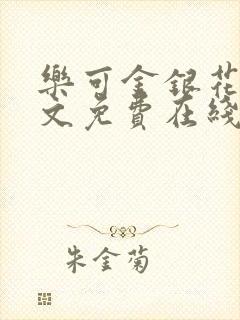 樂可金銀花
文免費在綫
朱金菊